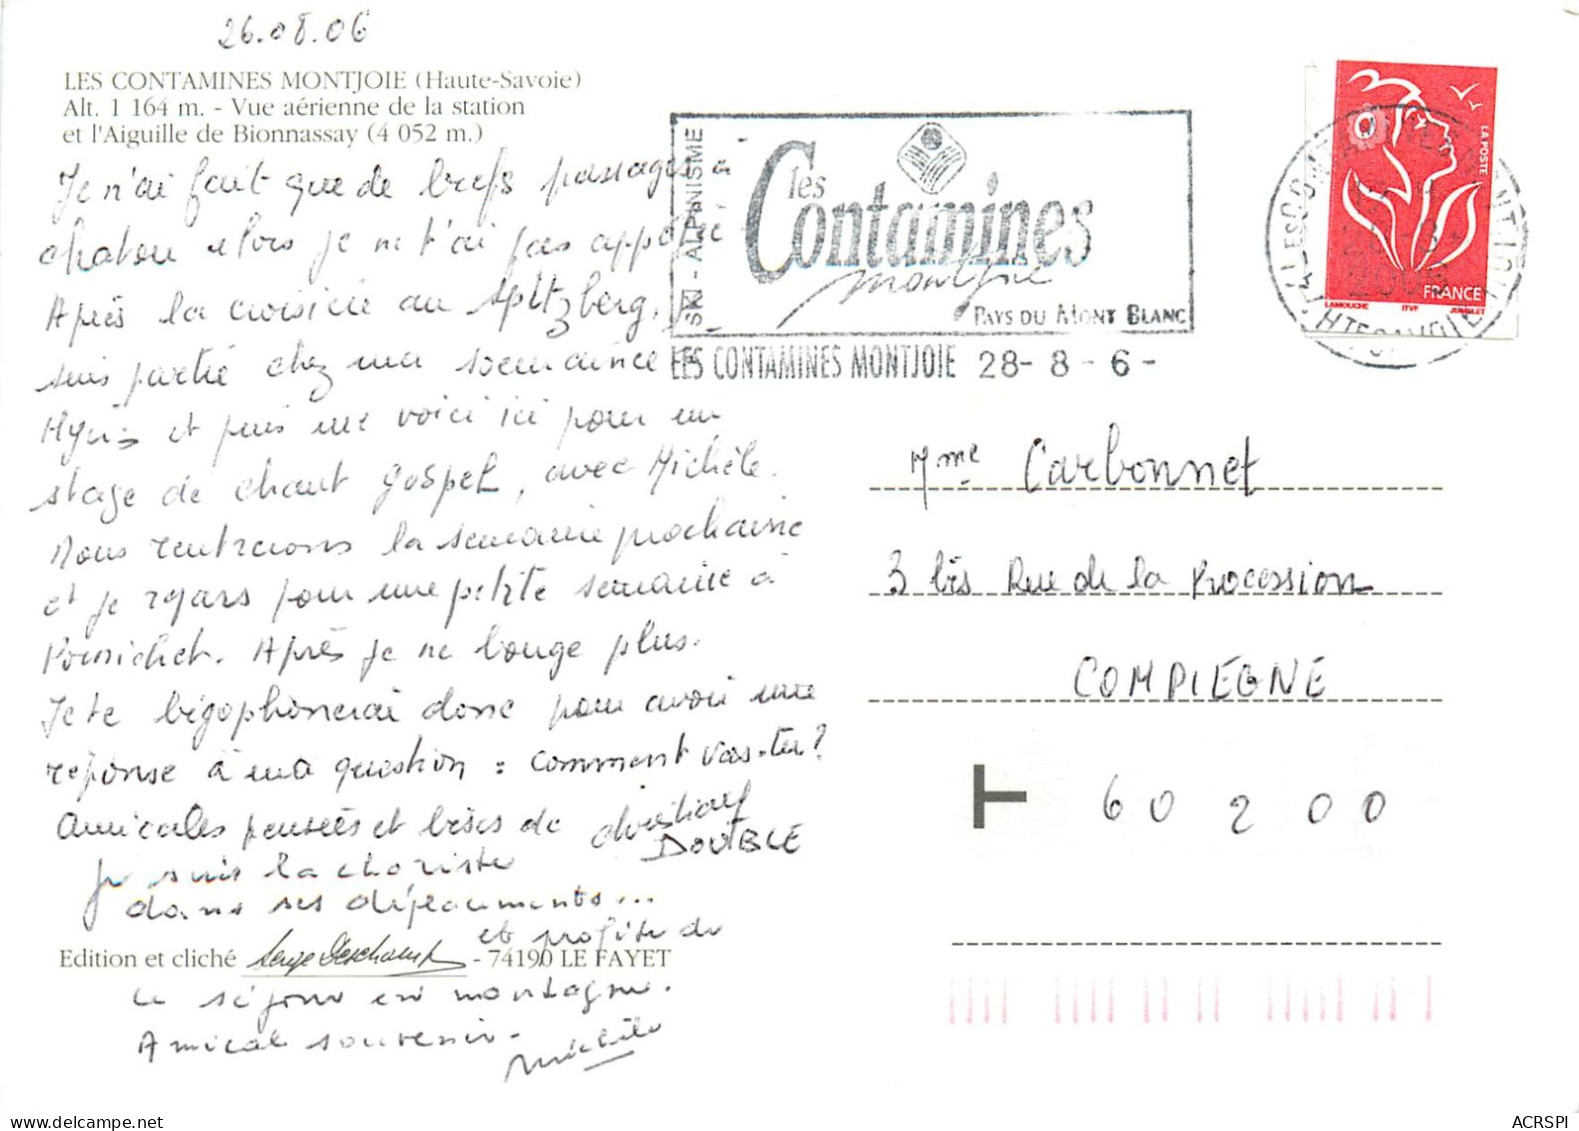 26.08.06
LES CONTAMINES MONTJOIE (Haute-Savoie)
Alt. 1 164 m. - Vue aérienne de la station
et l'Aiguille de Bionnassay (4 052 m.)
Je n'ai fait que de brefs passages à
chatou alors je ne t'ai pas appelé
Après la croisière au Spitzberg, je
suis partie chez ma
et puis me voici ici pour un
stage de chant gospel, avec Michèle.
Nous rentrerons la semaine prochaine
et je repars pour une petite semaine à
Pornichet. Après je ne bouge plus.
Je te bigophonerai donc pour avoir une
réponse à ma question : comment vas-tu?
Amicales pensées et bises de
DOUBLE
Je suis la choriste
dans ses déplacements...
et profite de
Edition et cliché Serge Deschamps - 74190 LE FAYET
ce séjour en montagne.
Amical souvenir -
Michèle
SKI - ALPINISME
les
Contamines
montjoie
PAYS DU MONT BLANC
LES CONTAMINES MONTJOIE 28-8-6-
LA POSTE
FRANCE
LAMOUCHE ITVF JUMELET
Mme Carbonnet
3 bis Rue de la Procession
COMPIEGNE
T 60 200
ACRSPI